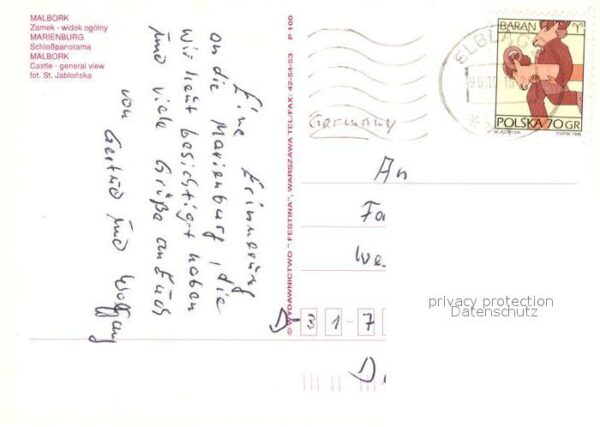 MALBORK
Zamek - widok ogólny
MARIENBURG
Schloßpanorama
MALBORK
Castle - general view
fot. St. Jabłońska
P 100
© WYDAWNICTWO "FESTINA", WARSZAWA TEL/FAX: 42-54-53
Eine Erinnerung
an die Marienburg, die
wir heut besichtigt haben
und viele Grüße an Euch
von Gertrud und Wolfgang
ELBLĄG
BARAN
POLSKA 70 GR
Germany
An
Fa
We
privacy protection
Datenschutz
D-317
D